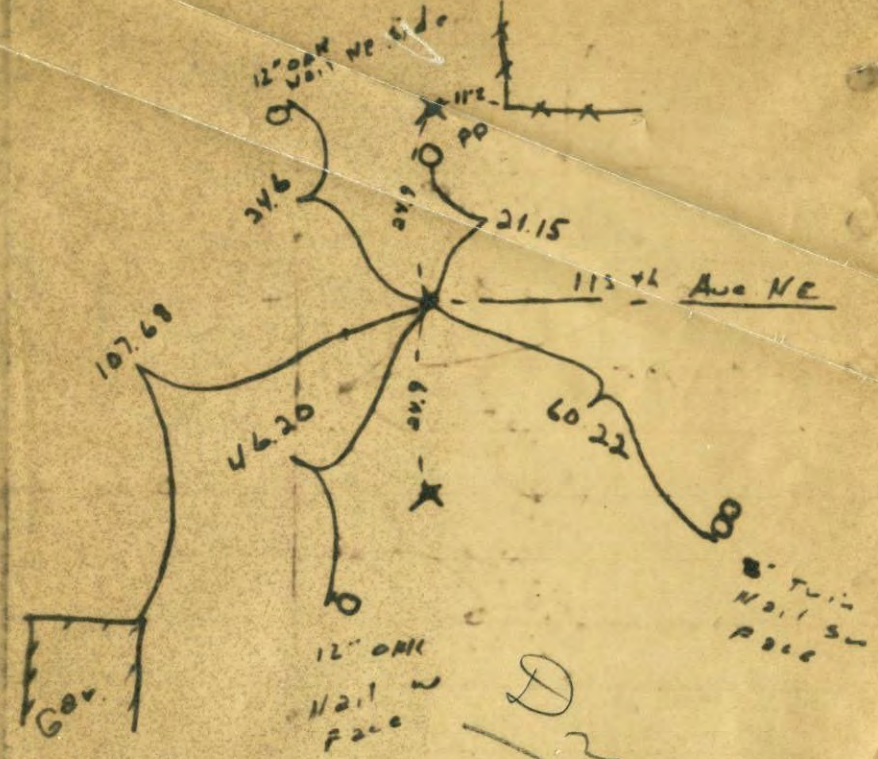 12" OAK
Nail NE Side
11.2
PP
24.6
24.9
21.15
115th Ave. NE
107.68
46.20
24.9
60.22
8" Twin
Nail SW
Face
12" OAK
Nail W
Face
D